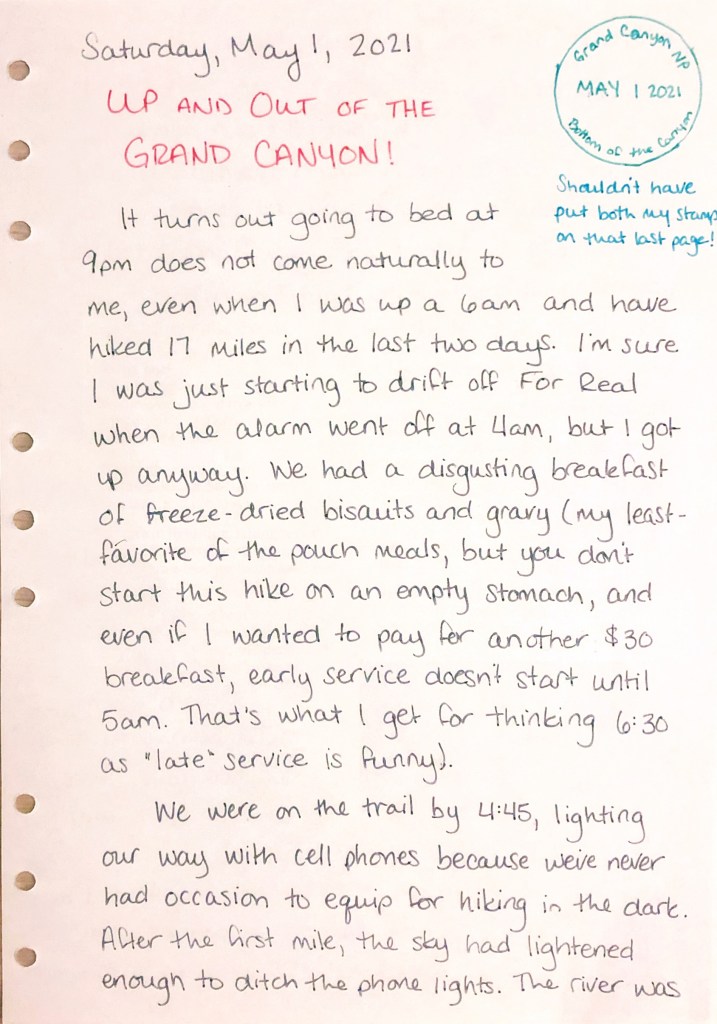 Saturday, May 1, 2021
UP AND OUT OF THE
GRAND CANYON!
Grand Canyon NP
MAY 1 2021
Bottom of the Canyon
Shouldn't have
put both my stamps
on that last page!
It turns out going to bed at
9pm does not come naturally to
me, even when I was up a 6am and have
hiked 17 miles in the last two days. I'm sure
I was just starting to drift off For Real
when the alarm went off at 4am, but I got
up anyway. We had a disgusting breakfast
of freeze-dried biscuits and gravy (my least-
favorite of the pouch meals, but you don't
start this hike on an empty stomach, and
even if I wanted to pay for another $30
breakfast, early service doesn't start until
5am. That's what I get for thinking 6:30
as "late" service is funny).
We were on the trail by 4:45, lighting
our way with cell phones because we've never
had occasion to equip for hiking in the dark.
After the first mile, the sky had lightened
enough to ditch the phone lights. The river was